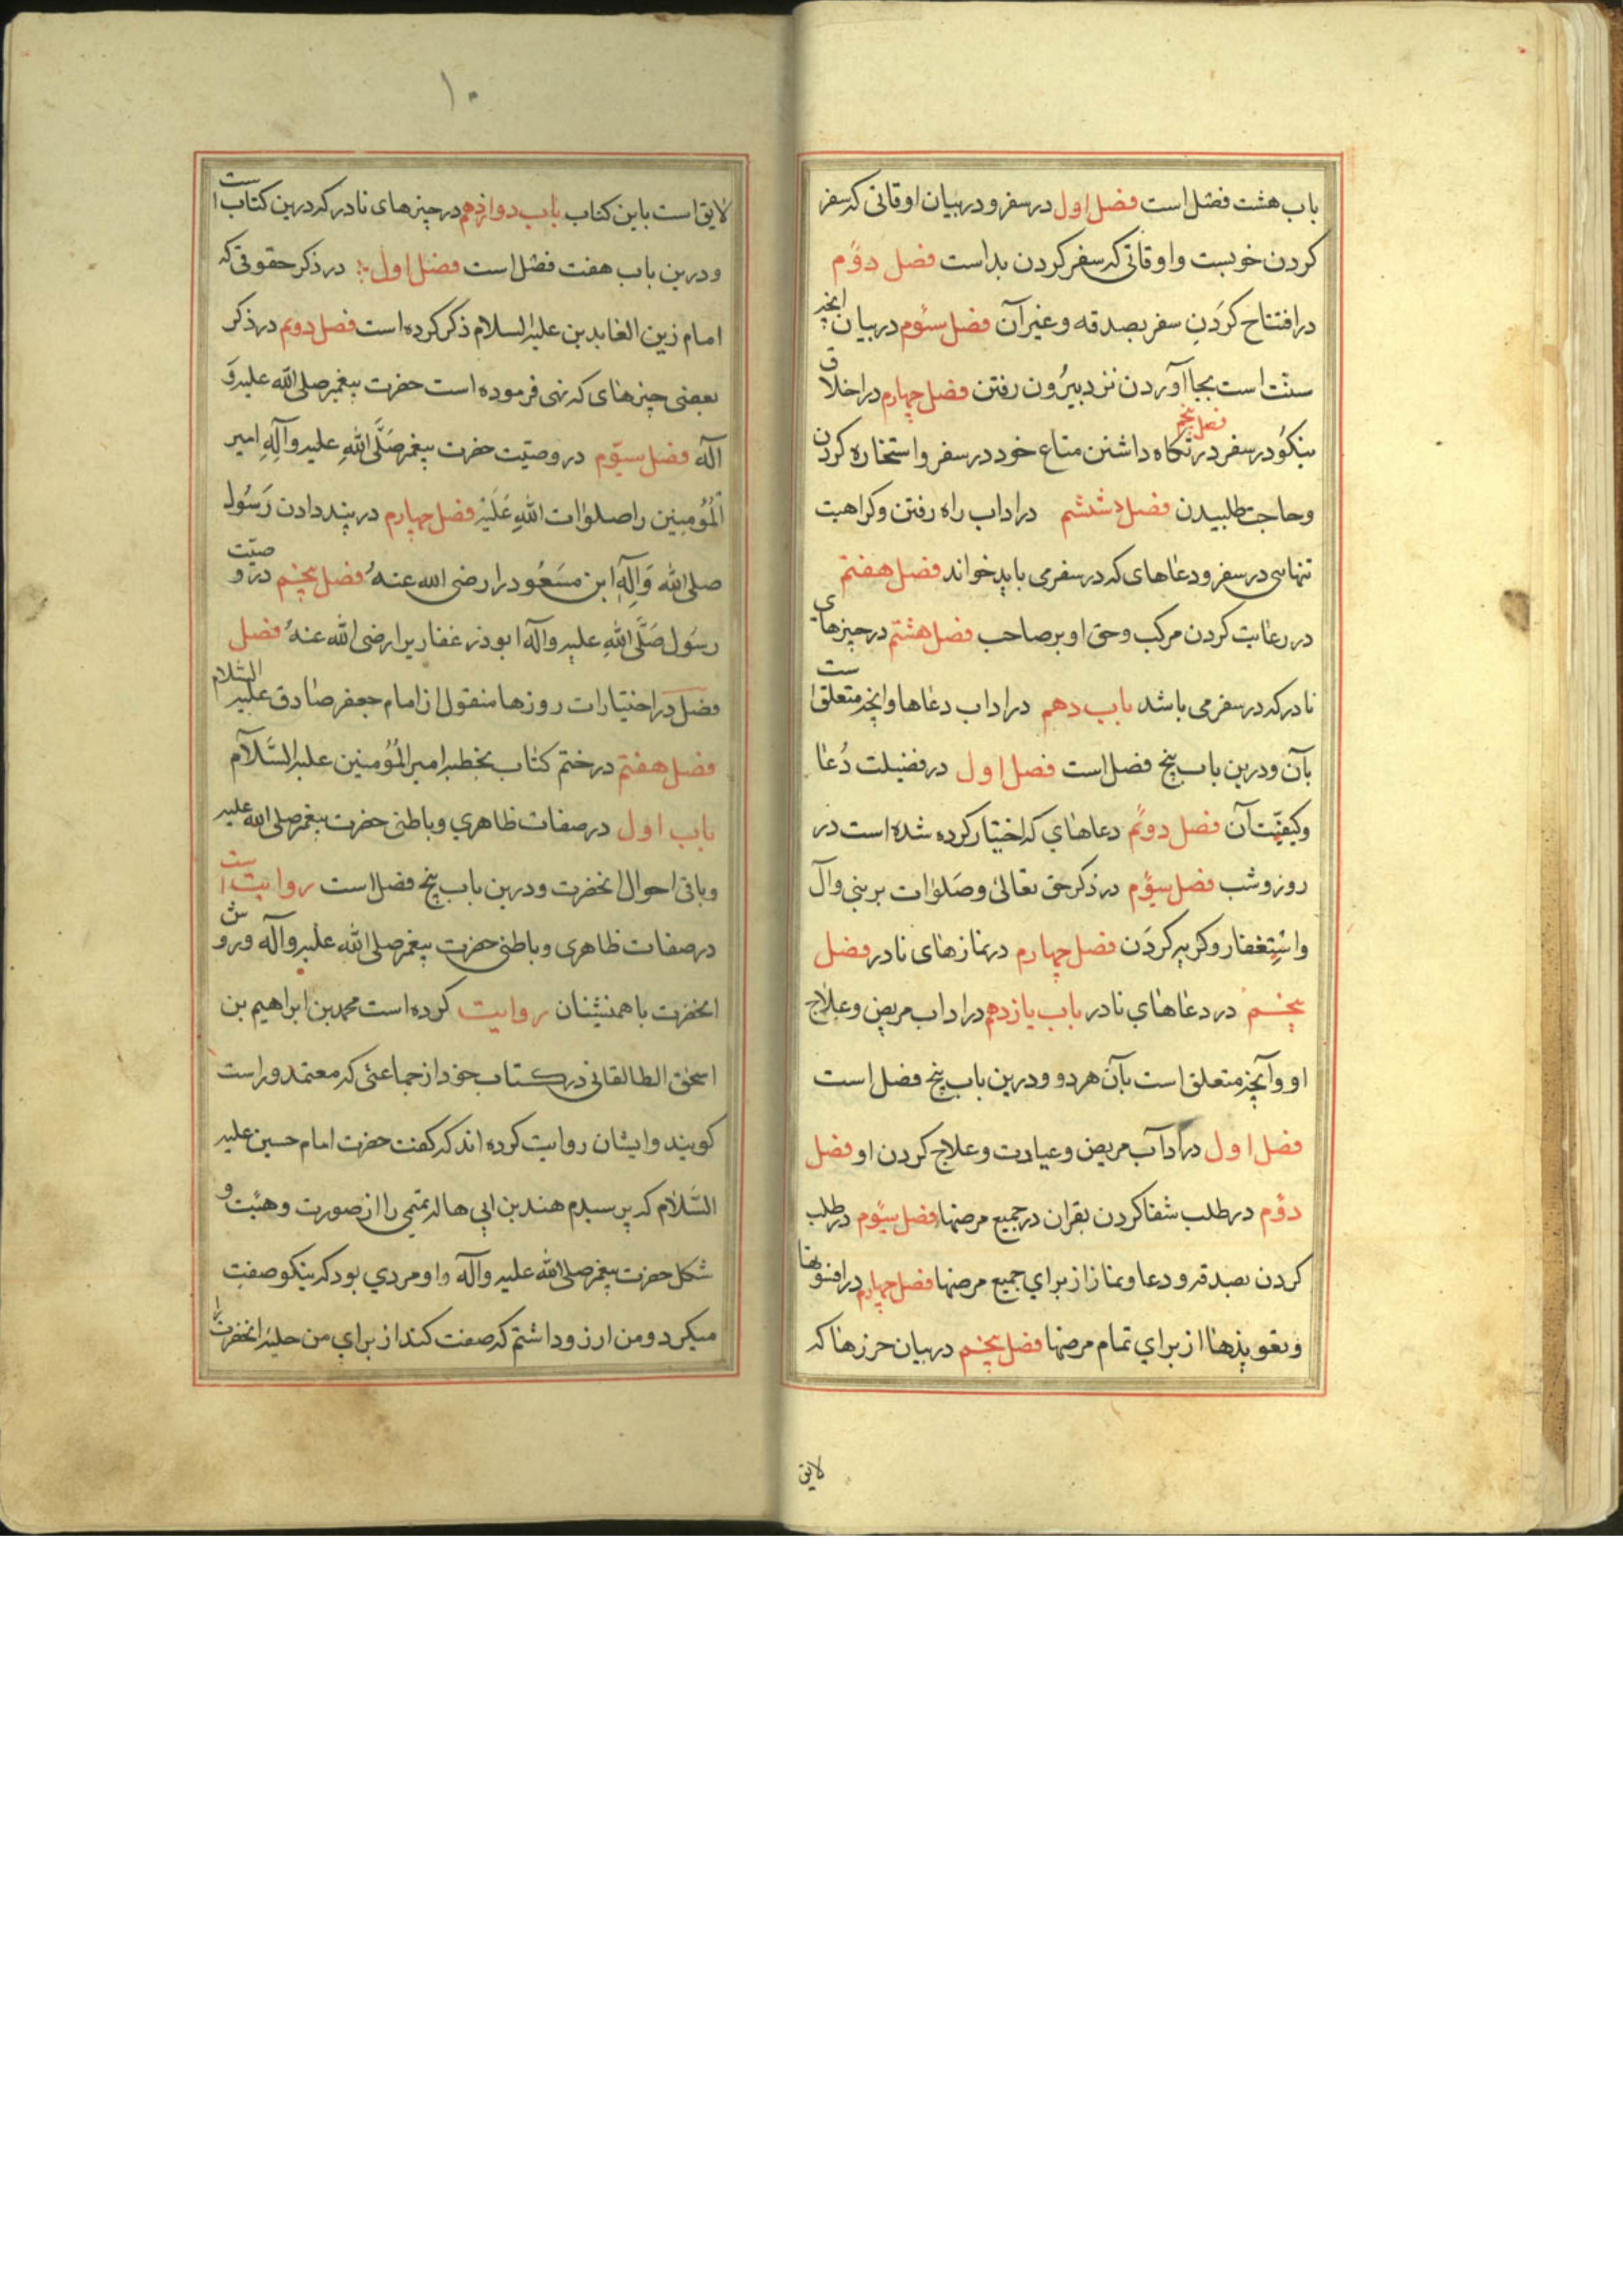 باب هشت فصل است فصل اول در سفر و در بیان اوقاتی که سفر
کردن خوبست و اوقاتی که سفر کردن بد است فصل دوم
در افتتاح کردن سفر بصدقه و غیر آن فصل سوم در بیان آنچه
سنت است بجا آوردن نزد بیرون رفتن فصل چهارم در اخلاق
نیکو در سفر فصل پنجم در نگاه داشتن متاع خود در سفر و استخاره کردن
و حاجت طلبیدن فصل ششم در اداب راه رفتن و کراهیت
تنهایی در سفر و دعاهای که در سفر می باید خواند فصل هفتم
در رعایت کردن مرکب و حق او بر صاحب فصل هشتم در چیزهای
نادر که در سفر می باشد باب دهم در اداب دعاها و آنچه متعلق است
بآن و درین باب پنج فصل است فصل اول در فضیلت دعا
و کیفیت آن فصل دوم دعاهای که اختیار کرده شده است در
روز و شب فصل سیوم در ذکر حق تعالی و صلوات بر نبی و آل
و استغفار و کریه کردن فصل چهارم در نمازهای نادر فصل
پنجم در دعاهای نادر باب یازدهم در اداب مریض و علاج
او و آنچه متعلق است بآن هر دو و درین باب پنج فصل است
فصل اول در آداب مریض و عیادت و علاج کردن او فصل
دوم در طلب شفا کردن بقران در جمیع مرضها فصل سیوم در طلب
کردن بصدقه و دعا و نماز از برای جمیع مرضها فصل چهارم در افسونها
و تعویذها از برای تمام مرضها فصل پنجم در بیان حرزها که
لایق
۱۰
لایق است باین کتاب باب دوازدهم در چیزهای نادر که درین کتاب است
و درین باب هفت فصل است فصل اول در ذکر حقوقی که
امام زین العابدین علیه السلام ذکر کرده است فصل دوم در ذکر
بعضی چیزهای که نهی فرموده است حضرت پیغمبر صلی الله علیه و
آله فصل سیوم در وصیت حضرت پیغمبر صلی الله علیه و آله امیر
المؤمنین را صلوات الله علیه فصل چهارم در پند دادن رسول
صلی الله و اله ابن مسعود را رضی الله عنه فصل پنجم در وصیت
رسول صلی الله علیه و آله ابوذر غفاریرا رضی الله عنه فصل
فصل در اختیارات روزها منقول از امام جعفر صادق علیه السلام
فصل هفتم در ختم کتاب بخطبه امیر المؤمنین علیه السلام
باب اول در صفات ظاهری و باطنی حضرت پیغمبر صلی الله علیه
و باقی احوال انحضرت و درین باب پنج فصل است روایت است
در صفات ظاهری و باطنی حضرت پیغمبر صلی الله علیه و آله و روش
انحضرت با همنشینان روایت کرده است محمد بن ابراهیم بن
اسحق الطالقانی در کتاب خود از جماعتی که معتمد و راست
کویند و ایشان روایت کرده اند که کفت حضرت امام حسین علیه
السلام که پرسیدم هند بن ابی هاله تمیمی را از صورت و هیئت و
شکل حضرت پیغمبر صلی الله علیه و آله و او مردی بود که نیکو صفت
میکرد و من ارزو داشتم که صفت کند از برای من حلیه انحضرت را